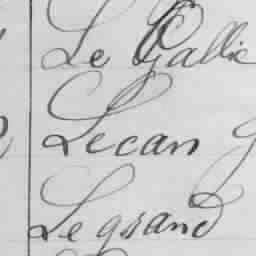 Le Gallic
Lecan
Legrand